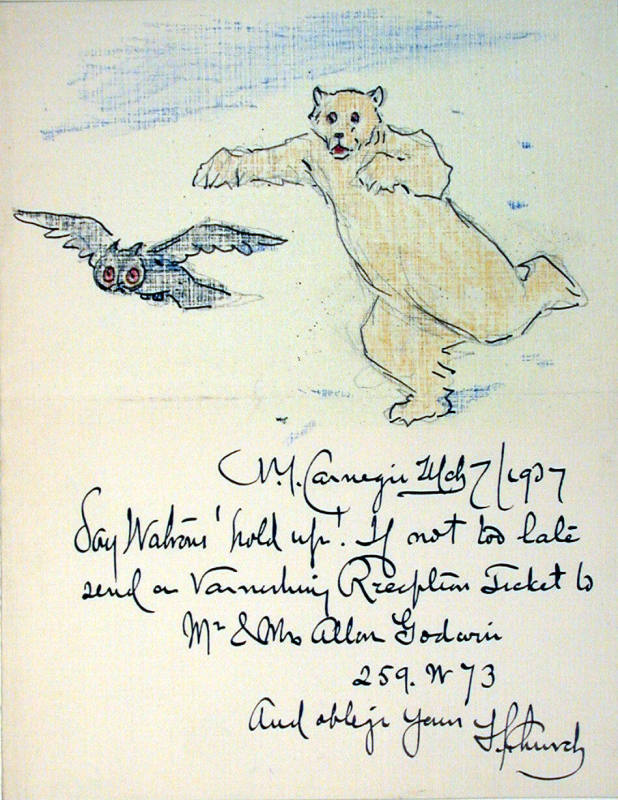 N.Y. Carnegie Mch 7/1907
Say Watrous' hold up'. If not too late
send a Varnishing Reception Ticket to
Mr & Mrs Allan Godwin
259. W 73
And oblige yours F S Church